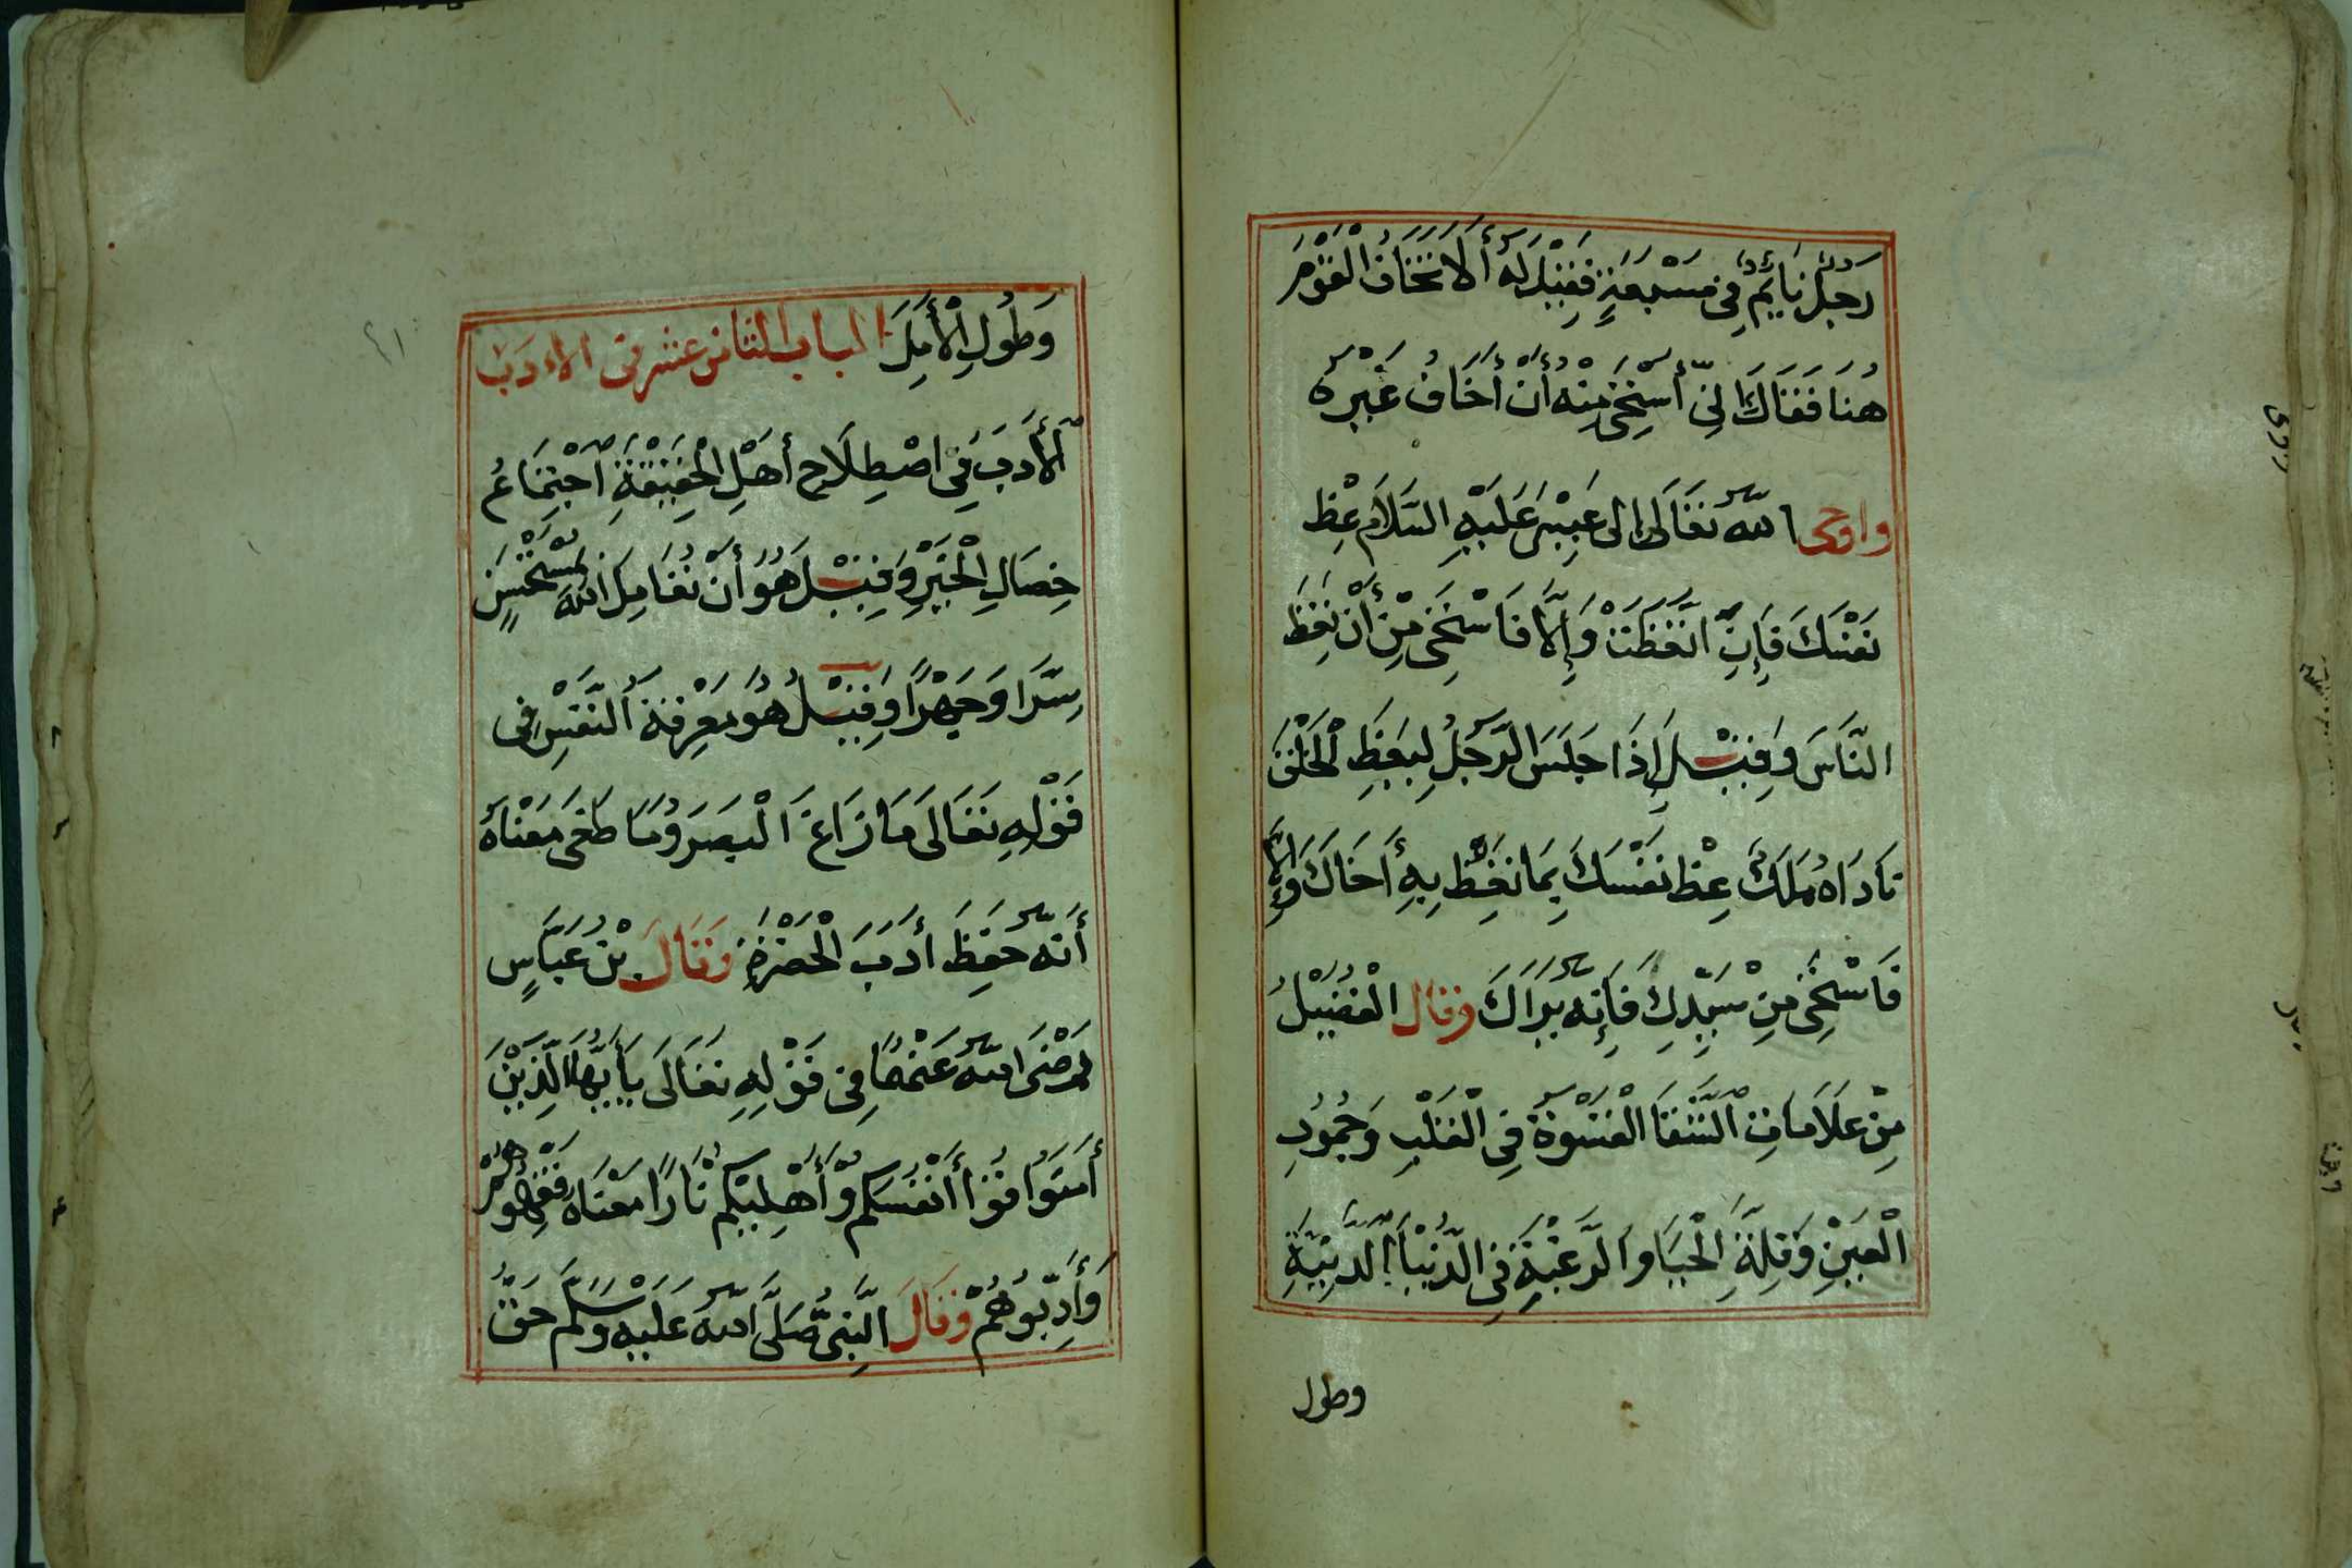 رَجُلٌ نَايِمٌ فِى مَسْبَعَةٍ فَقِيْلَ لَهُ أَلَا تَخَافُ الْقَوْمَ
هُنَا فَقَالَ اِنِّى أَسْتَحِى مِنْهُ أَنْ أَخَافُ غَيْرَهُ
واوحى اللّٰه تَعَالَى الى عِيْسَى عَلَيْهِ السَّلَام عِظ
نَفْسَكَ فَإِنِ اتَّعَظَتْ وَإِلَّا فَاسْتَحِى مِنْ أَنْ تَعِظَ
النَّاسَ وَقِيْلَ إِذَا جَلَسَ الرَّجُلُ لِيَعِظَ الْخَلْقَ
نَادَاهُ مَلَكٌ عِظ نَفْسَكَ بِمَا تَعِظُ بِهِ أَخَاكَ وَإِلَّا
فَاسْتَحِى مِنْ سَيِّدِكَ فَإِنَّهُ يَرَاكَ وقال الْفُضَيْلُ
مِنْ عَلَامَاتِ الشَّقَا الْقَسْوَةُ فِى الْقَلْبِ وَجُمُودِ
الْعَيْنِ وَقِلَّةِ الْحَيَا والرَّغْبَةِ فِى الدُّنْيَا الدَّنِيَّةِ
وطول
٢١
وَطُولِ الْأَمَلَ الباب الثانى عشر فى الادَب
اَلْأَدَبَ فِى اصْطِلَاحِ أَهْلِ الْحَقِيْقَةِ اجْتِمَاعُ
خِصَالِ الْخَيْرِ وَقِيْلَ هُوَ أَنْ تُعَامِلَ اللّٰهَ بِمُسْتَحْسَنٍ
سِرًّا وَجَهْرًا وَقِيْلُ هُوَ مَعْرِفَةُ النَّفْسِ فِى
قَوْلِهِ تَعَالَى مَا زَاغَ الْبَصَرَ وَمَا طَغَى مَعْنَاهُ
أَنَّهُ حَفِظَ أَدَبَ الْحَضْرَةِ وَقَالَ بْنُ عَبَّاسٍ
رَضَى اللّٰهُ عَنْهُمَا فِى قَوْلِهِ تَعَالَى يَأَيُّهَا الَّذِيْنَ
أَمَنُوا قُوْا أَنْفُسَكُمْ وَأَهْلِيْكُمْ نَارًا مَعْنَاهُ فَقِّهُوهُمْ
وَأَدِّبُوهُمْ وَقَالَ النَّبِىُّ صَلَّى اللّٰهُ عَلَيْهِ وَسَلَّمَ حَقُّ